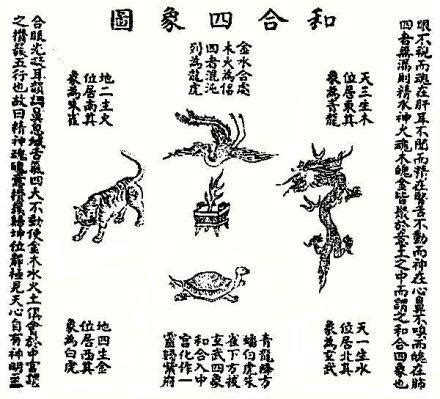 和合四象圖
眼不視而魂在肝耳不聞而精在腎舌不動而神在心鼻不嗅而魄在肺
四者無漏則精水神火魂木魄金皆聚於意土之中而謂之和合四象也
天三生木
位居東其
象為青龍
天一生水
位居北其
象為玄武
金水合處
木火為侶
四者混沌
列為龍虎
青龍降方
蟠伯虎朱
雀下方
玄武四象
和合入中
宮化作一
靈歸紫府
地二生火
位居南其
象為朱雀
地四生金
位居西其
象為白虎
合眼光凝耳韻調鼻息緘舌氣四大不動使金木水火土俱會於中宮謂
之攢簇五行也故曰精神魂魄意攢簇歸坤位靜極見天心自有神明至